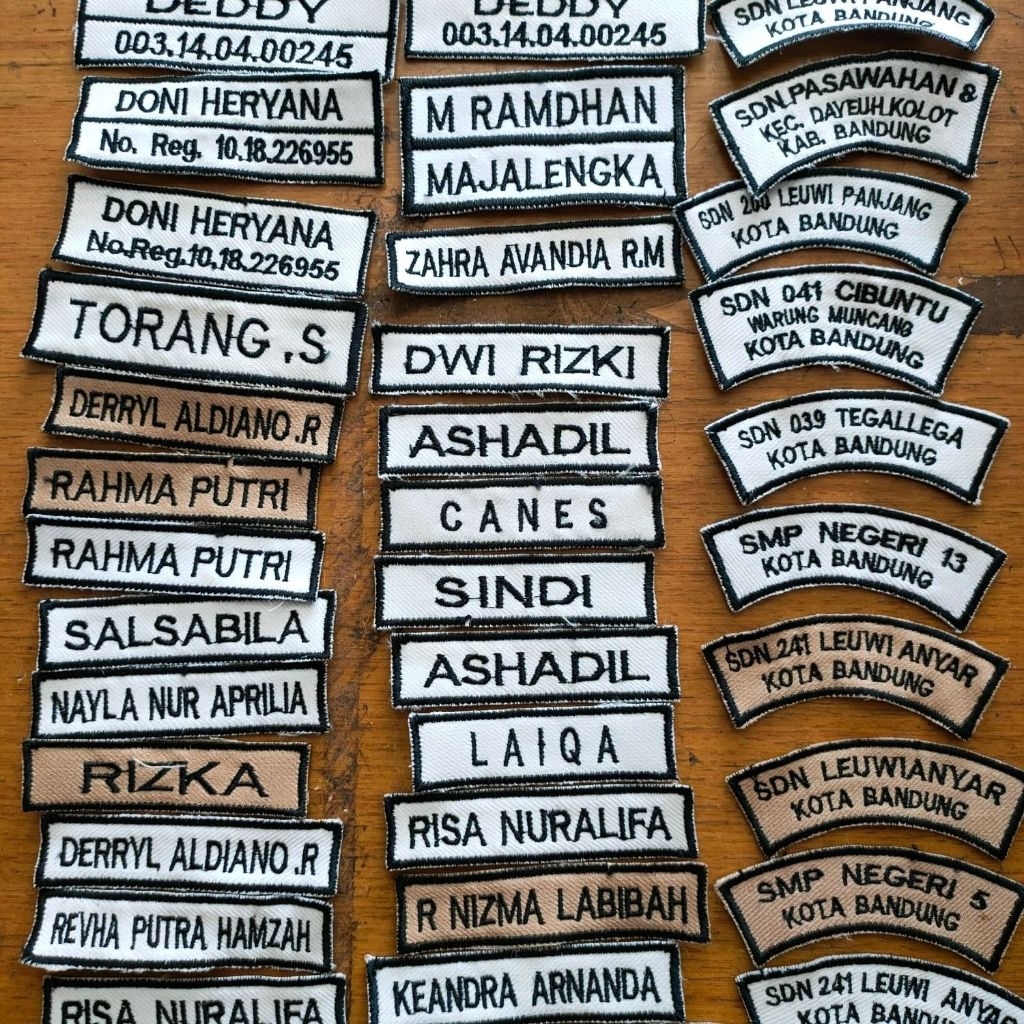 DEDDY
003.14.04.00245
DONI HERYANA
No. Reg. 10.18.226955
DONI HERYANA
No.Reg.10.18.226955
TORANG .S
DERRYL ALDIANO .R
RAHMA PUTRI
RAHMA PUTRI
SALSABILA
NAYLA NUR APRILIA
RIZKA
DERRYL ALDIANO .R
REVHA PUTRA HAMZAH
RISA NURALIFA
DEDDY
003.14.04.00245
M RAMDHAN
MAJALENGKA
ZAHRA AVANDIA R.M
DWI RIZKI
ASHADIL
CANES
SINDI
ASHADIL
LAIQA
RISA NURALIFA
R NIZMA LABIBAH
KEANDRA ARNANDA
SDN LEUWI PANJANG
KOTA BANDUNG
SDN.PASAWAHAN
KEC. DAYEUH.KOLOT
KAB. BANDUNG
SDN 260 LEUWI PANJANG
KOTA BANDUNG
SDN 041 CIBUNTU
WARUNG MUNCANG
KOTA BANDUNG
SDN 039 TEGALLEGA
KOTA BANDUNG
SMP NEGERI 13
KOTA BANDUNG
SDN 241 LEUWI ANYAR
KOTA BANDUNG
SDN LEUWIANYAR
KOTA BANDUNG
SMP NEGERI 5
KOTA BANDUNG
SDN 241 LEUWI ANYAR
KOTA BANDUNG